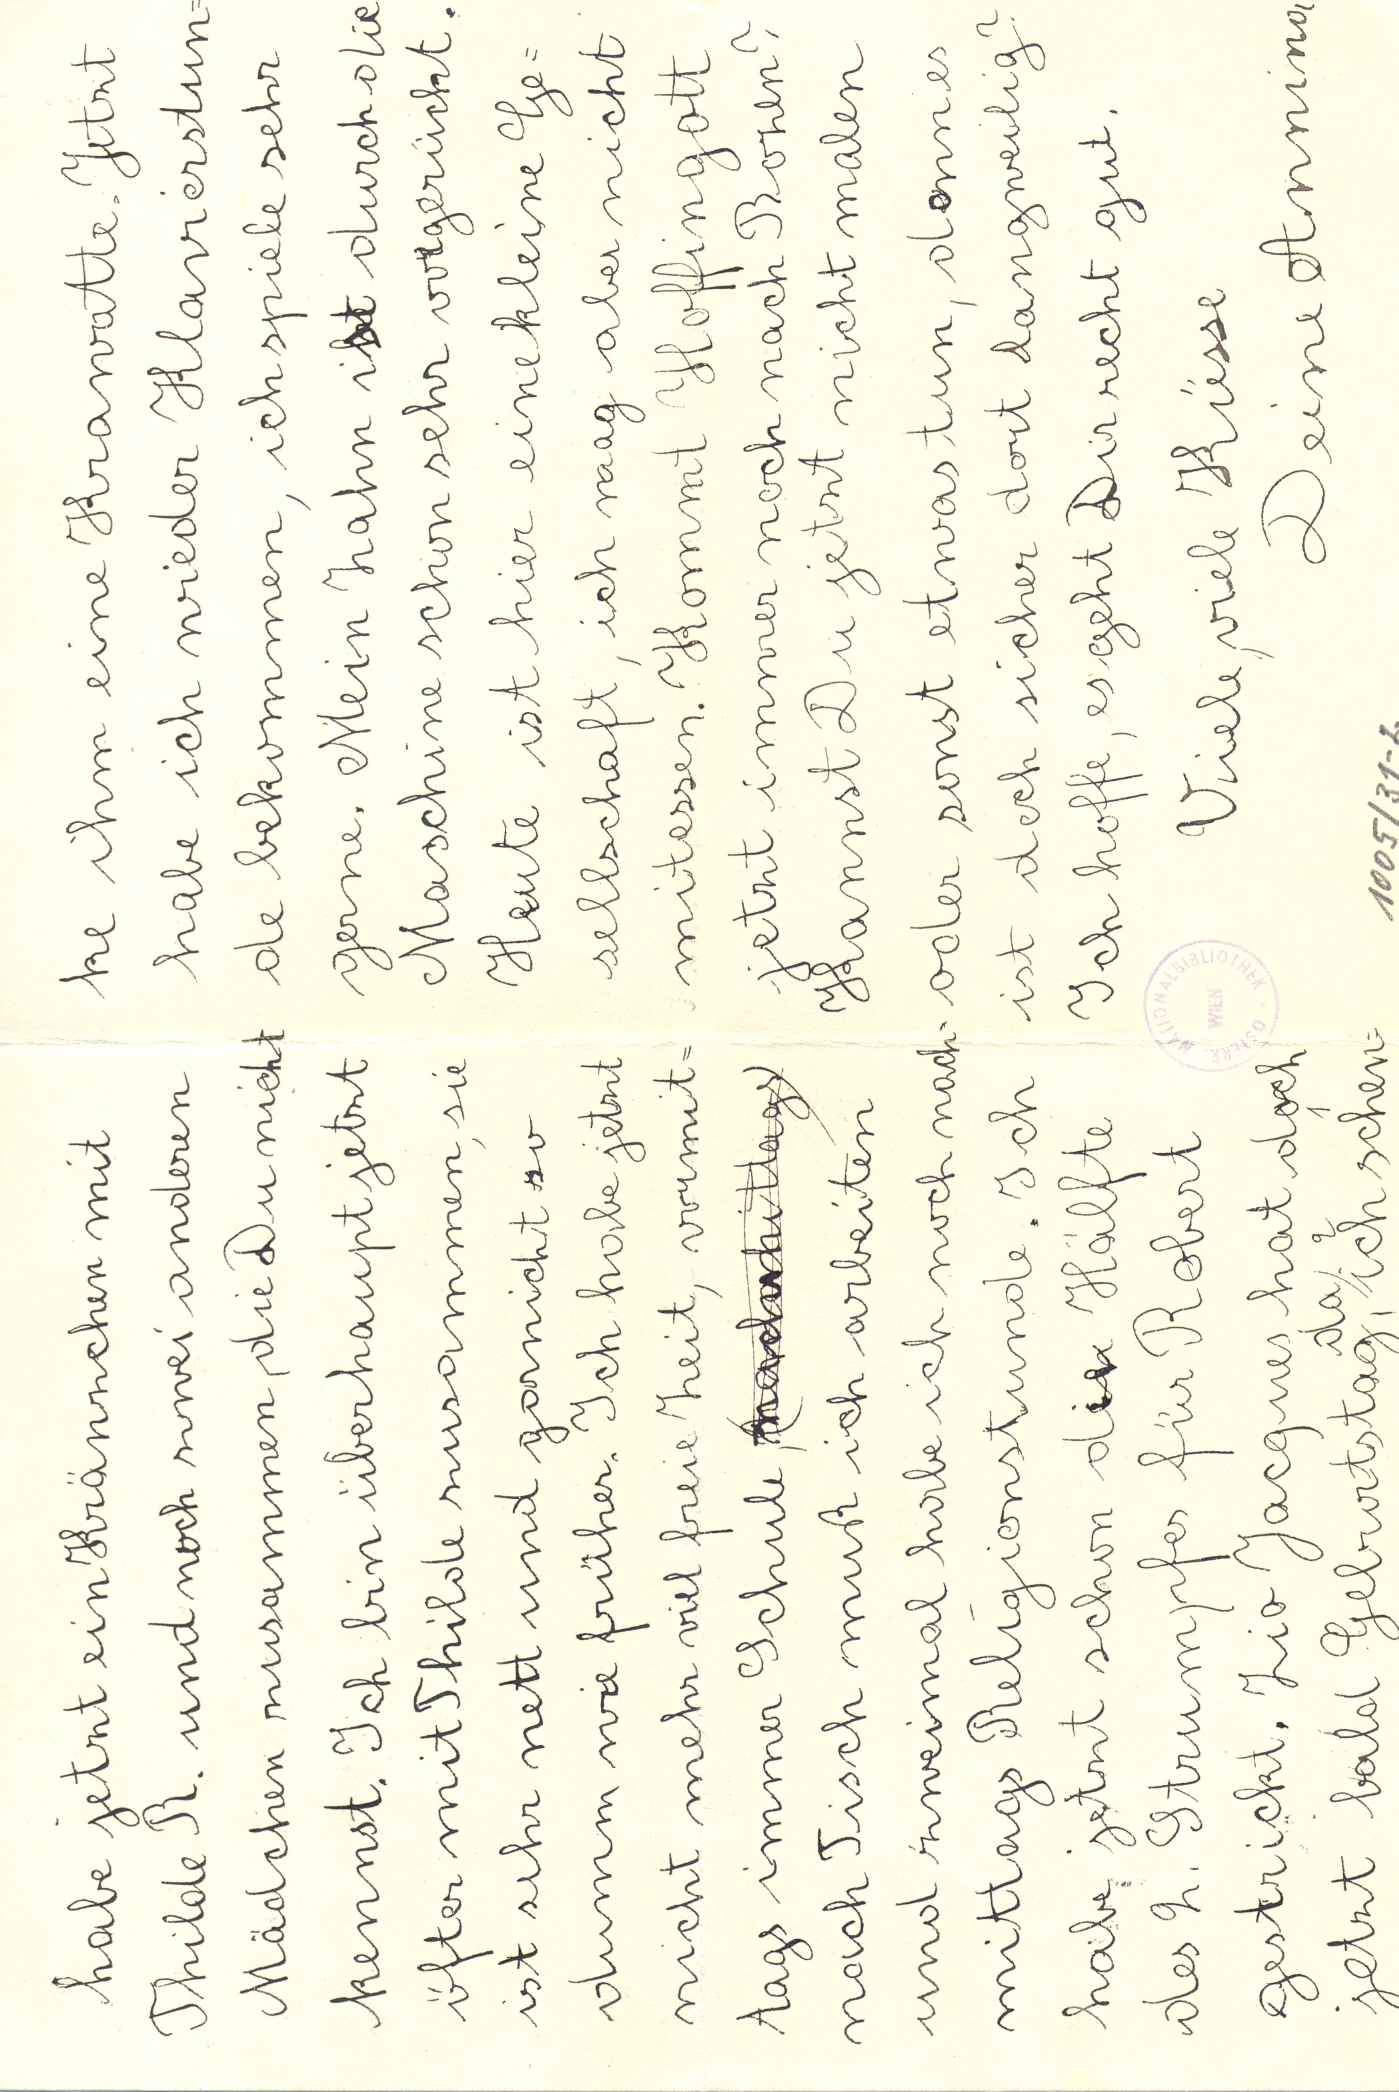 habe jetzt ein Kränzchen mit
Thilde R. und noch zwei anderen
Mädchen zusammen, die Du nicht
kennst. Ich bin überhaupt jetzt
öfter mit Thilde zusammen, sie
ist sehr nett und garnicht so
dumm wie früher. Ich habe jetzt
nicht mehr viel freie Zeit, vormit=
tags immer Schule nachmittags
nach Tisch muß ich arbeiten
und zweimal habe ich noch nach-
mittags Religionstunde. Ich
habe jetzt schon die Hälfte
des 2. Strumpfes für Robert
gestrickt. Zio Jacques hat doch
da?
jetzt bald Geburtstag, ich schen=
ke ihm eine Kravatte. Jetzt
habe ich wieder Klavierstun=
de bekommen, ich spiele sehr
gerne. Mein Zahn ist durch die
Maschine schon sehr vorgerückt.
Heute ist hier eine kleine Ge=
sellschaft, ich mag aber nicht
mitessen. Kommt Hoffingott
jetzt immer noch nach Bozen?
Kannst Du jetzt nicht malen
oder sonst etwas tun, denn es
ist doch sicher dort langweilig?
Ich hoffe, es geht Dir recht gut.
Viele, viele Küsse
Deine Annina
ÖSTERR. NATIONALBIBLIOTHEK
WIEN